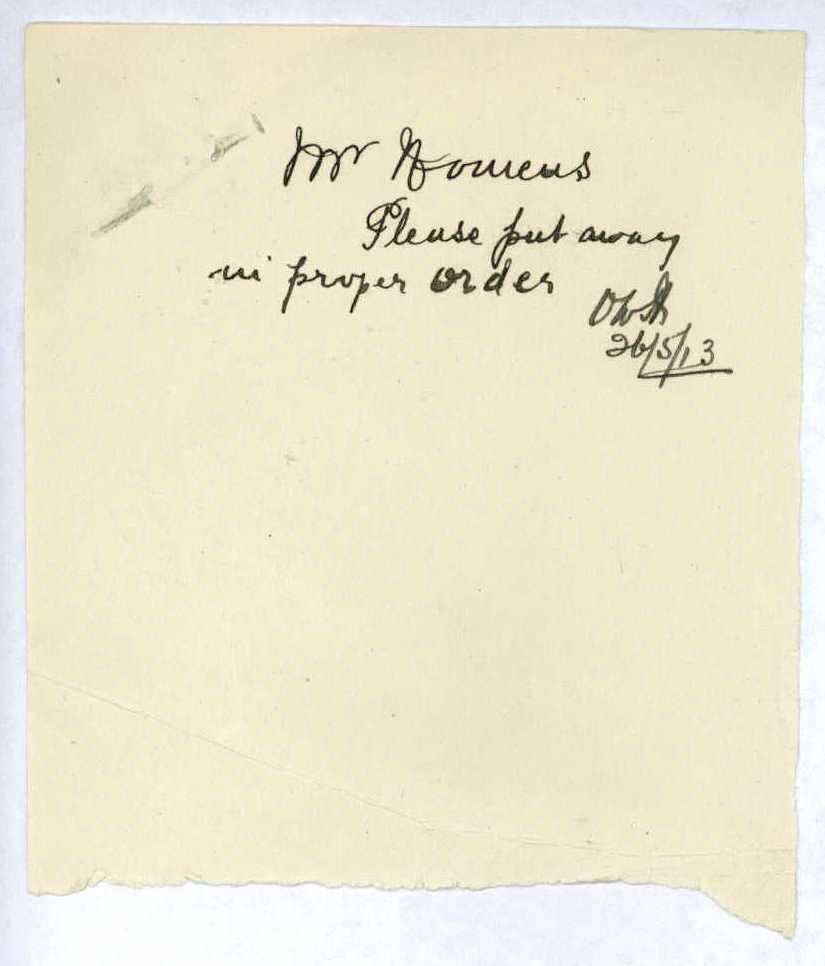 Mr Homens
Please put away
in proper order
26/5/13